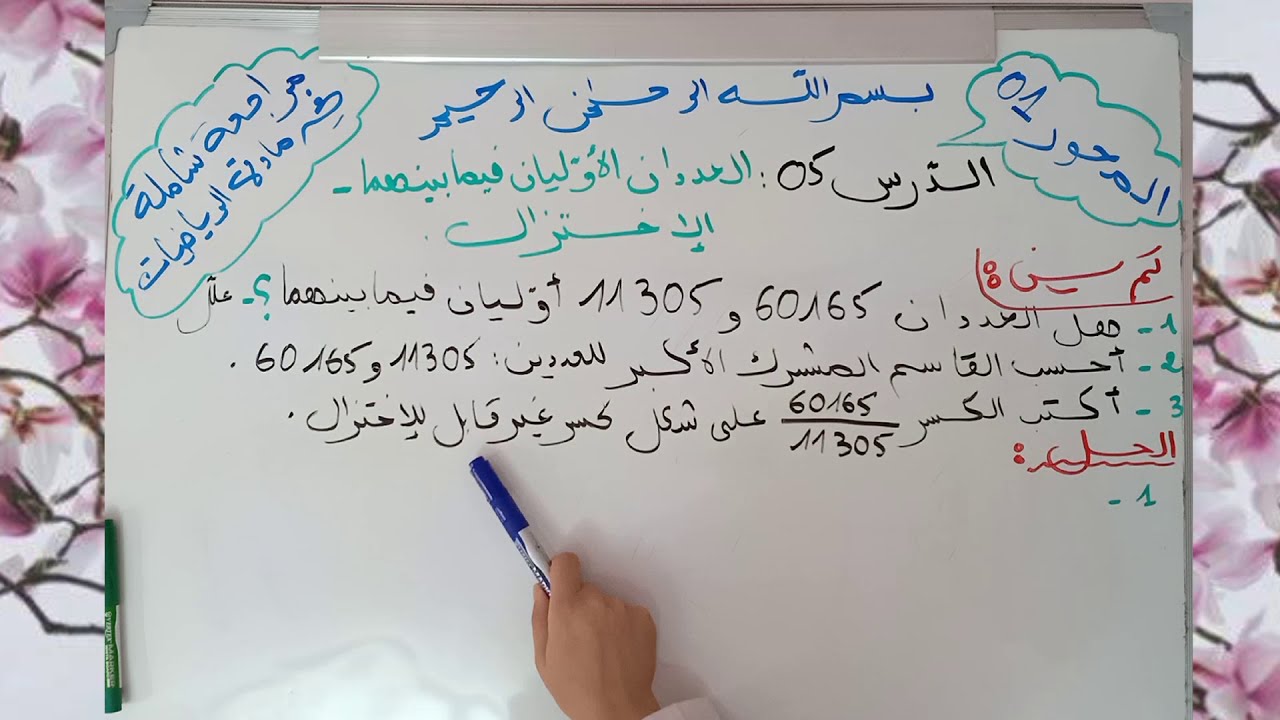 بسم الله الرحمن الرحيم
المحور 01
مراجعة شاملة
في مادة الرياضيات
الدّرس 05: العددان الأوّليان فيما بينهما -
الإختزال.
تمرين:
1- هل العددان 60165 و 11305 أوّليان فيما بينهما؟ - علّل
2- أحسب القاسم المشترك الأكبر للعددين: 11305 و 60165.
3- أكتب الكسر 60165/11305 على شكل كسر غير قابل للإختزال.
الحل:
1-